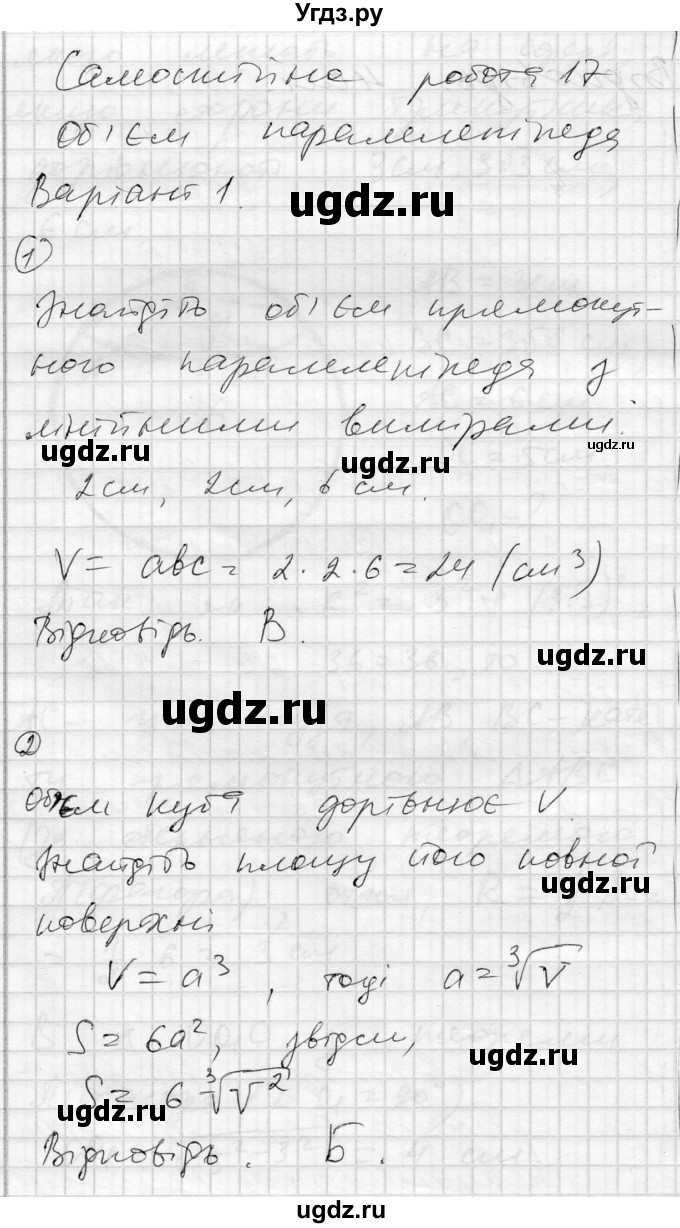 Угдз.ру
Самостійна робота 17
Об'єм паралелепіпеда
Варіант 1.
ugdz.ru
1
Знайдіть об'єм прямокут-
ного паралелепіпеда з
лінійними вимірами:
ugdz.ru
ugdz.ru
ugdz.ru
2см, 2см, 6 см.
V = abc = 2·2·6 = 24 (см³)
Відповідь. В.
ugdz.ru
ugdz.ru
2
Об'єм куба дорівнює V.
Знайдіть площу його повної
ugdz.ru
поверхні
V = a³, тоді a = ∛V
S = 6a², звідси,
ugdz.ru
S = 6 ∛V²
ugdz.ru
Відповідь. Б.
ugdz.ru